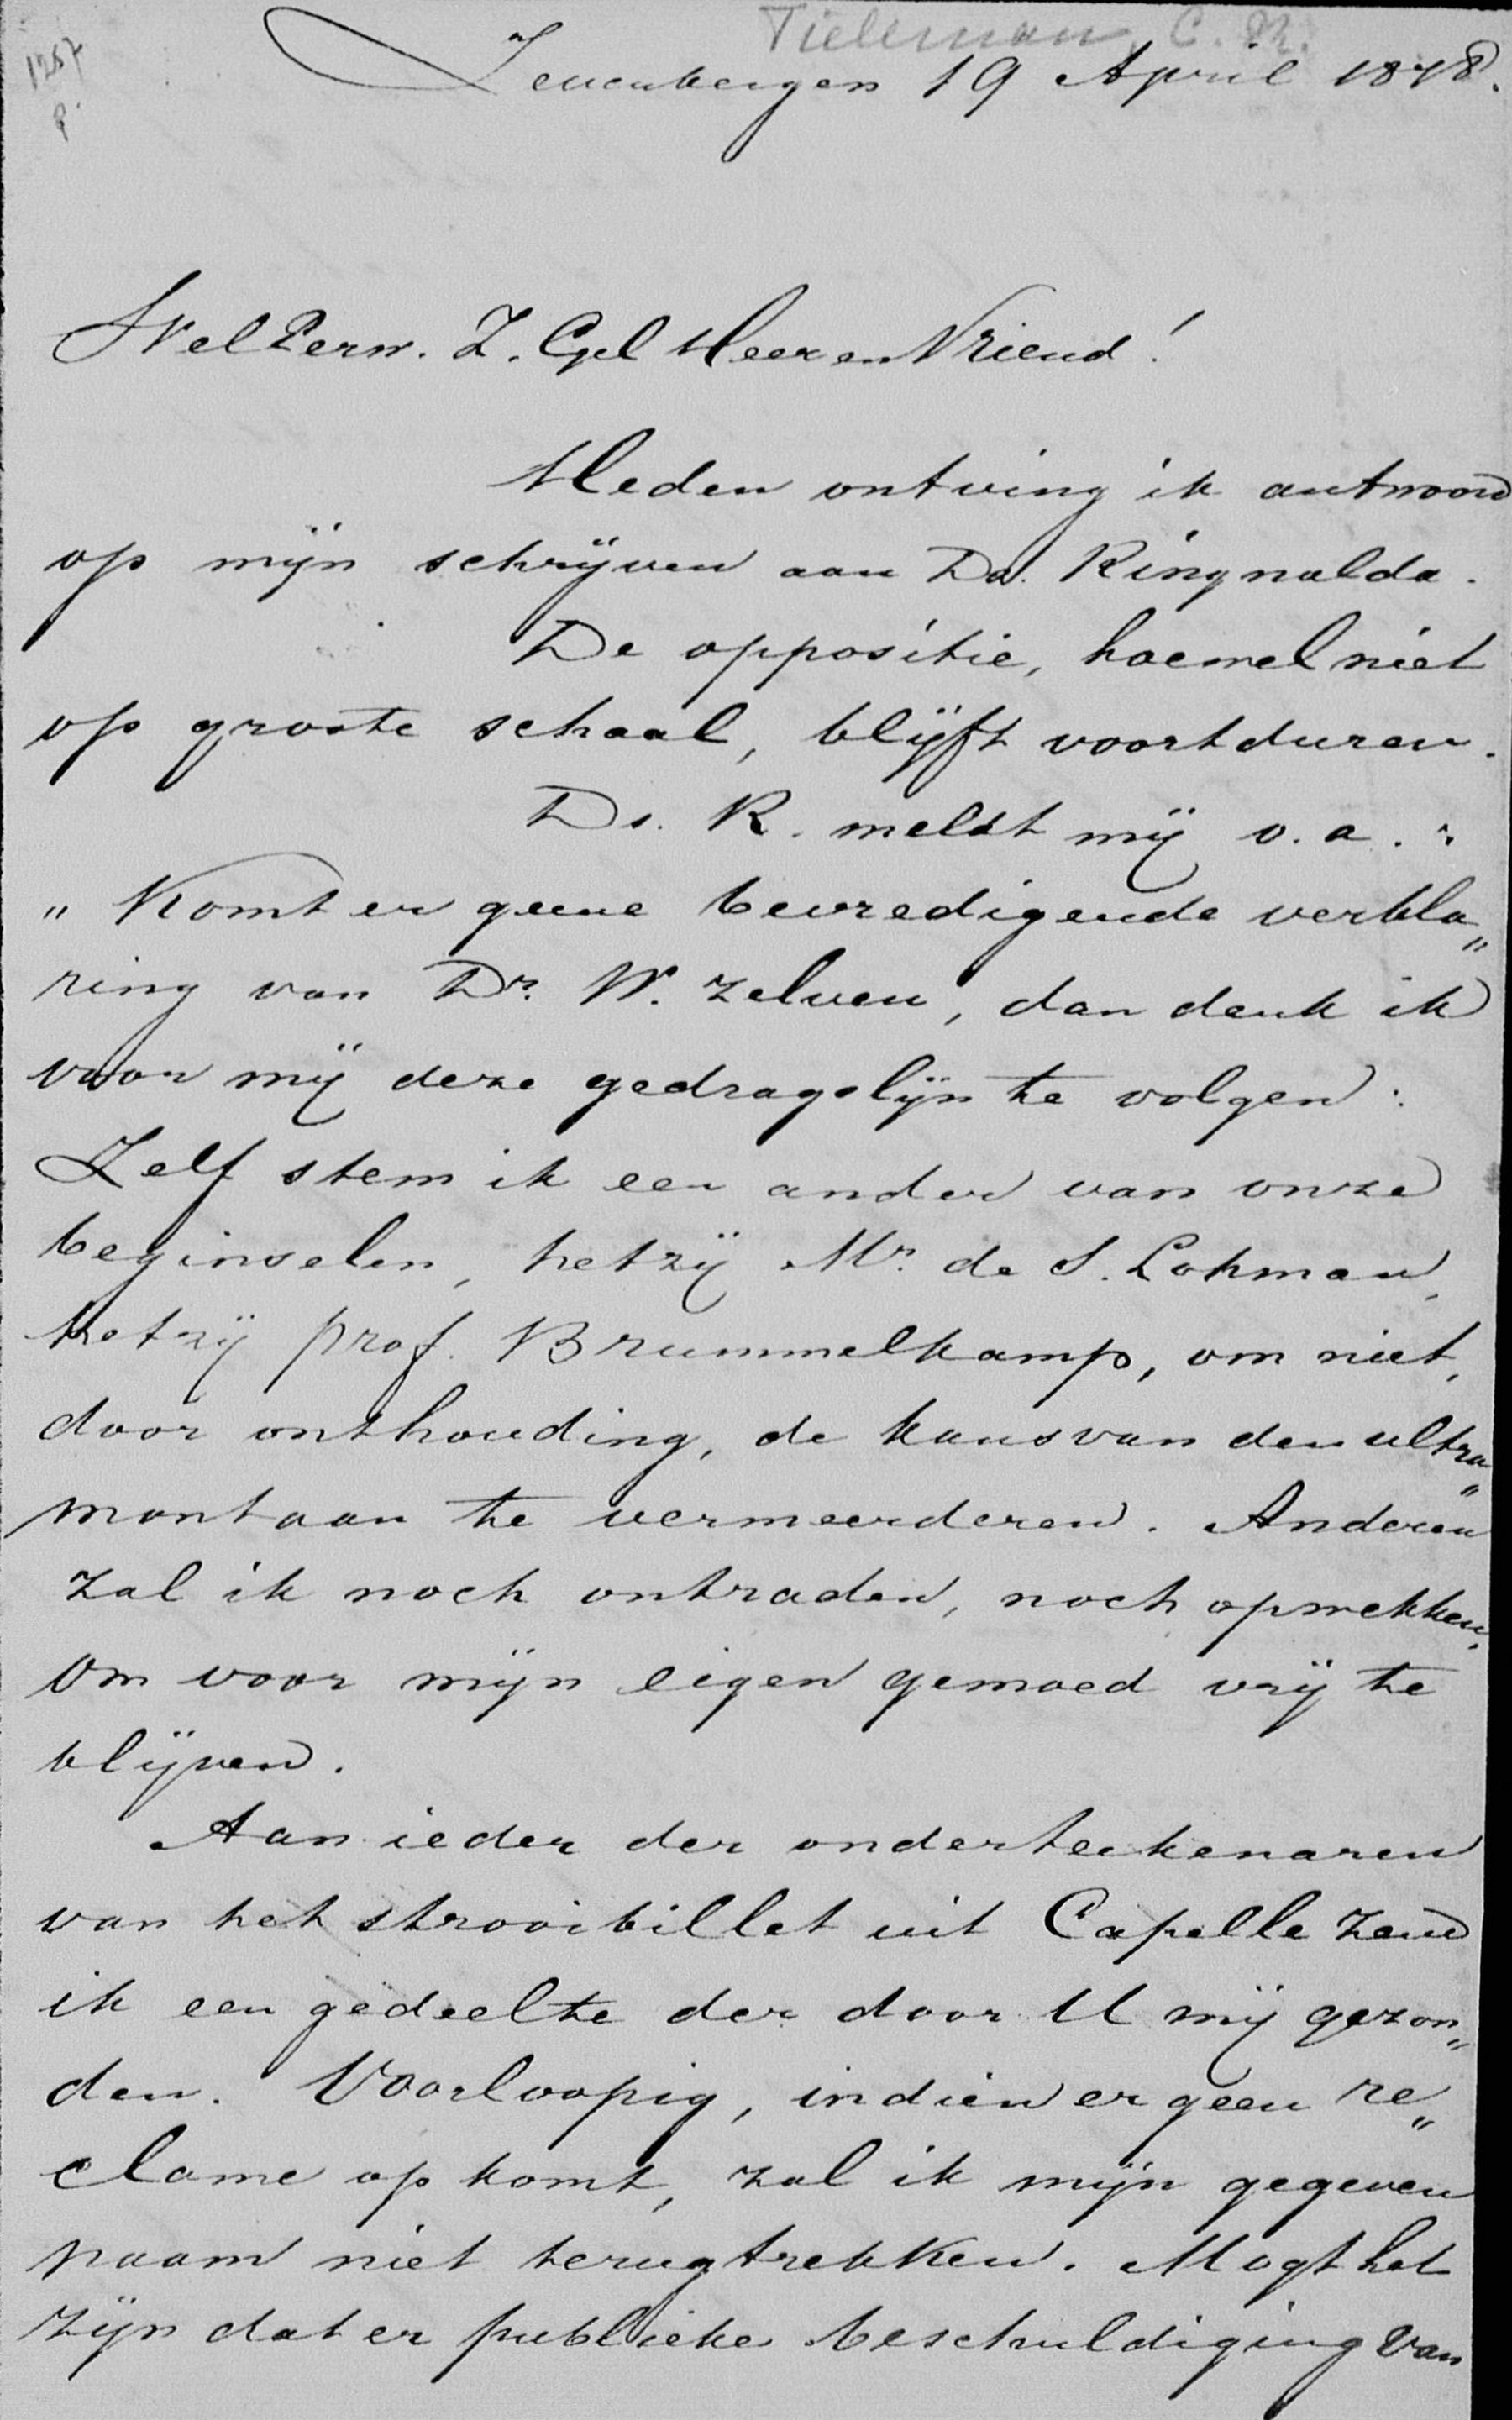 Tieleman, C. M.
1257
P.
Zevenbergen 19 April 1878.
WelEerw. Z. Gel Heer en Vriend!
Heden ontving ik antwoord
op mijn schrijven aan Ds. Ringnalda.
De oppositie, hoewel niet
op groote schaal, blijft voortduren.
Ds. R. meldt mij o.a.:
„Komt er geene bevredigende verkla„
ring van Dr. W. zelven, dan denk ik
voor mij deze gedragslijn te volgen:
Zelf stem ik een ander van onze
beginselen, hetzij Mr. de S. Lohman,
hetzij prof. Brummelkamp, om niet,
door onthouding, de kans van den ultra„
montaan te vermeerderen. Anderen
zal ik noch ontraden, noch opwekken,
om voor mijn eigen gemoed vrij te
blijven.
Aan ieder der onderteekenaren
van het strooibillet uit Capelle zend
ik een gedeelte der door U mij gezon„
den. Voorloopig, indien er geen re„
clame op komt, zal ik mijn gegeven
naam niet terugtrekken. Mogt het
zijn dat er publieke beschuldiging van